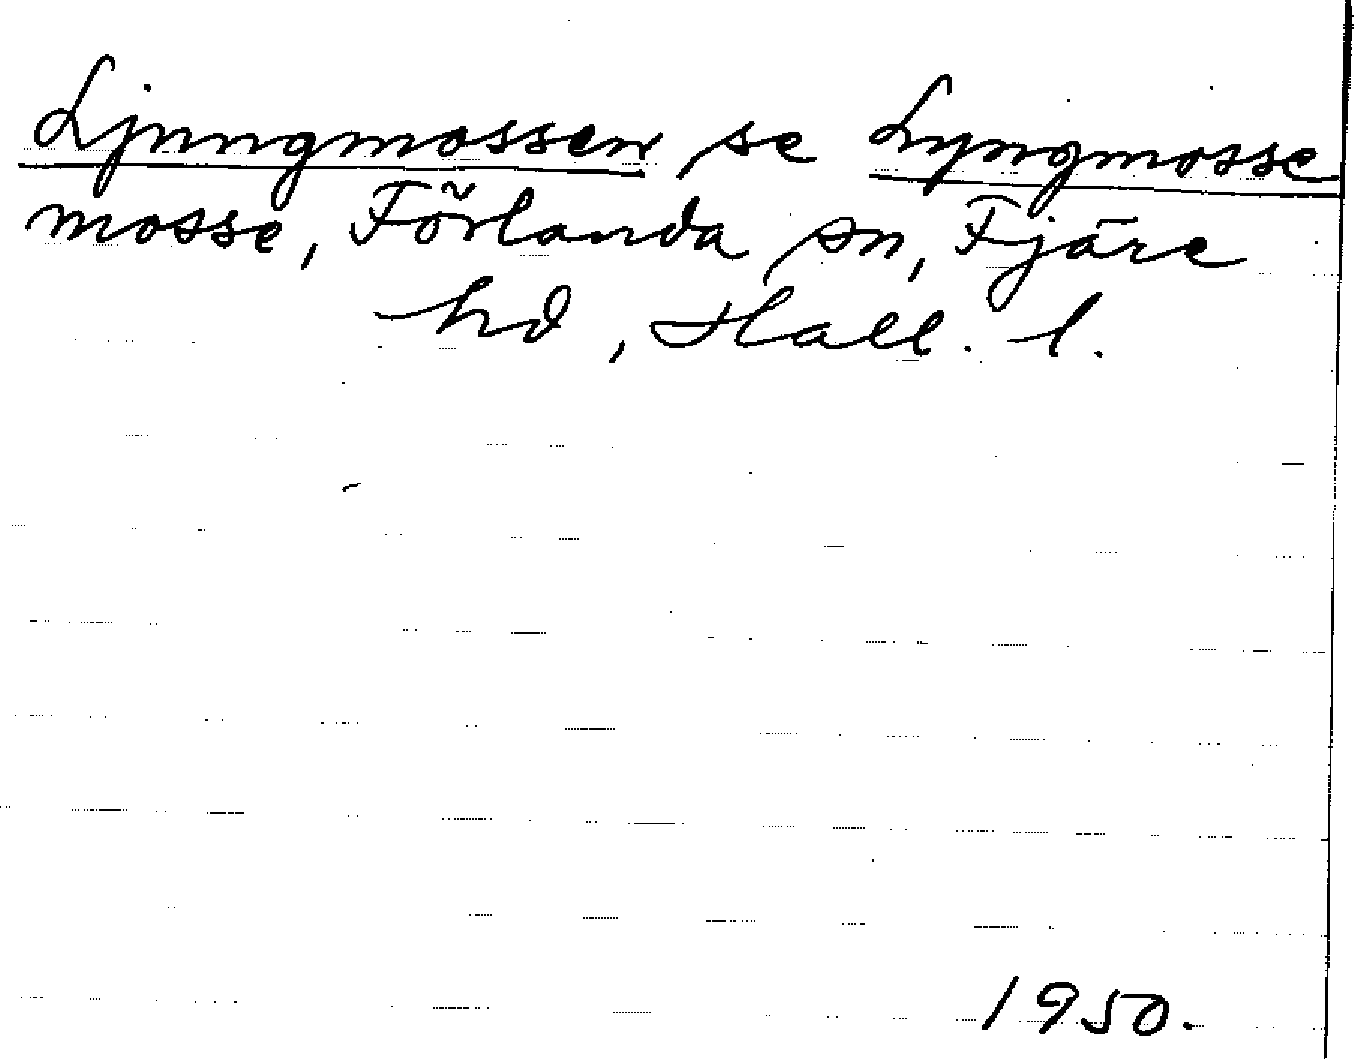 Ljungmossen, se Lyngmosse
mosse, Förlanda sn, Fjäre
hd, Hall. l.
1950.